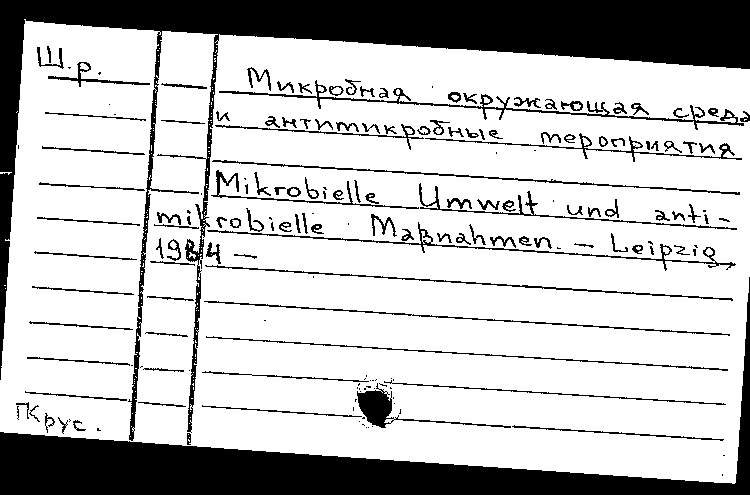 Ш.р.
Микробная окружающая среда
и антимикробные мероприятия
Mikrobielle Umwelt und anti-
mikrobielle Maßnahmen. – Leipzig,
1984 –
ГКрус.